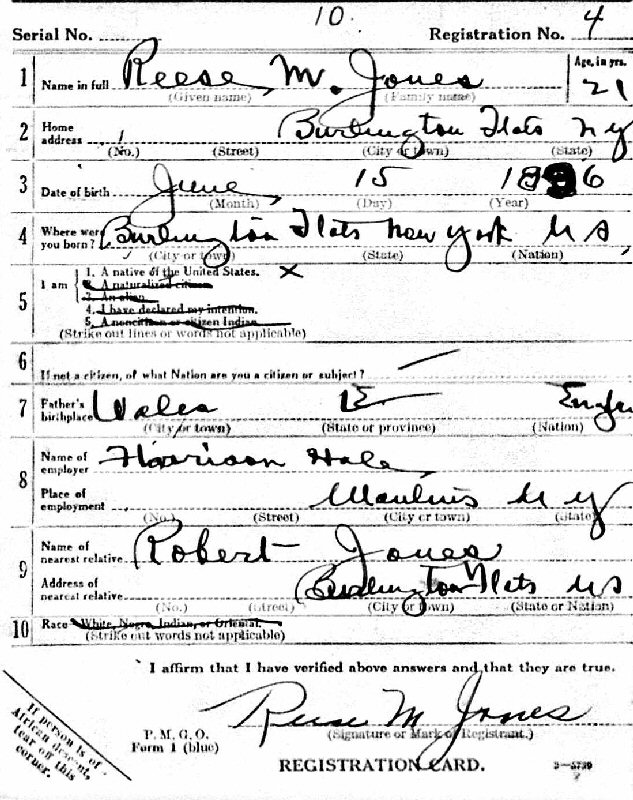 10.
Serial No. Registration No. 4
1 Name in full Reese M. Jones Age, in yrs. 21
(Given name) (Family name)
2 Home address Burlington Flats N Y
(No.) (Street) (City or town) (State)
3 Date of birth June 15 1896
(Month) (Day) (Year)
4 Where were you born? Burlington Flats New York U S
(City or town) (State) (Nation)
5 I am
1. A native of the United States. X
2. A naturalized citizen
3. An alien
4. I have declared my intention.
5. A noncitizen or citizen Indian
(Strike out lines or words not applicable)
6 If not a citizen, of what Nation are you a citizen or subject?
7 Father's birthplace Wales
(City or town) (State or province) (Nation)
8 Name of employer Harrison Hale
Place of employment Manlius N Y
(No.) (Street) (City or town) (State)
9 Name of nearest relative Robert Jones
Address of nearest relative Burlington Flats
(No.) (Street) (City or town) (State or Nation)
10 Race White, Negro, Indian, or Oriental.
(Strike out words not applicable)
I affirm that I have verified above answers and that they are true.
Reese M Jones
(Signature or Mark of Registrant.)
P. M. G. O.
Form 1 (blue)
REGISTRATION CARD.
If person is of
African descent,
tear off this
corner.